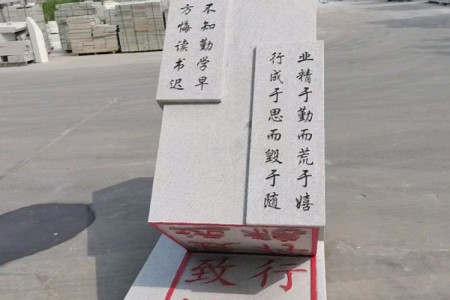 业精于勤而荒于嬉
行成于思而毁于随
不知勤学早
方悔读书迟
行
致